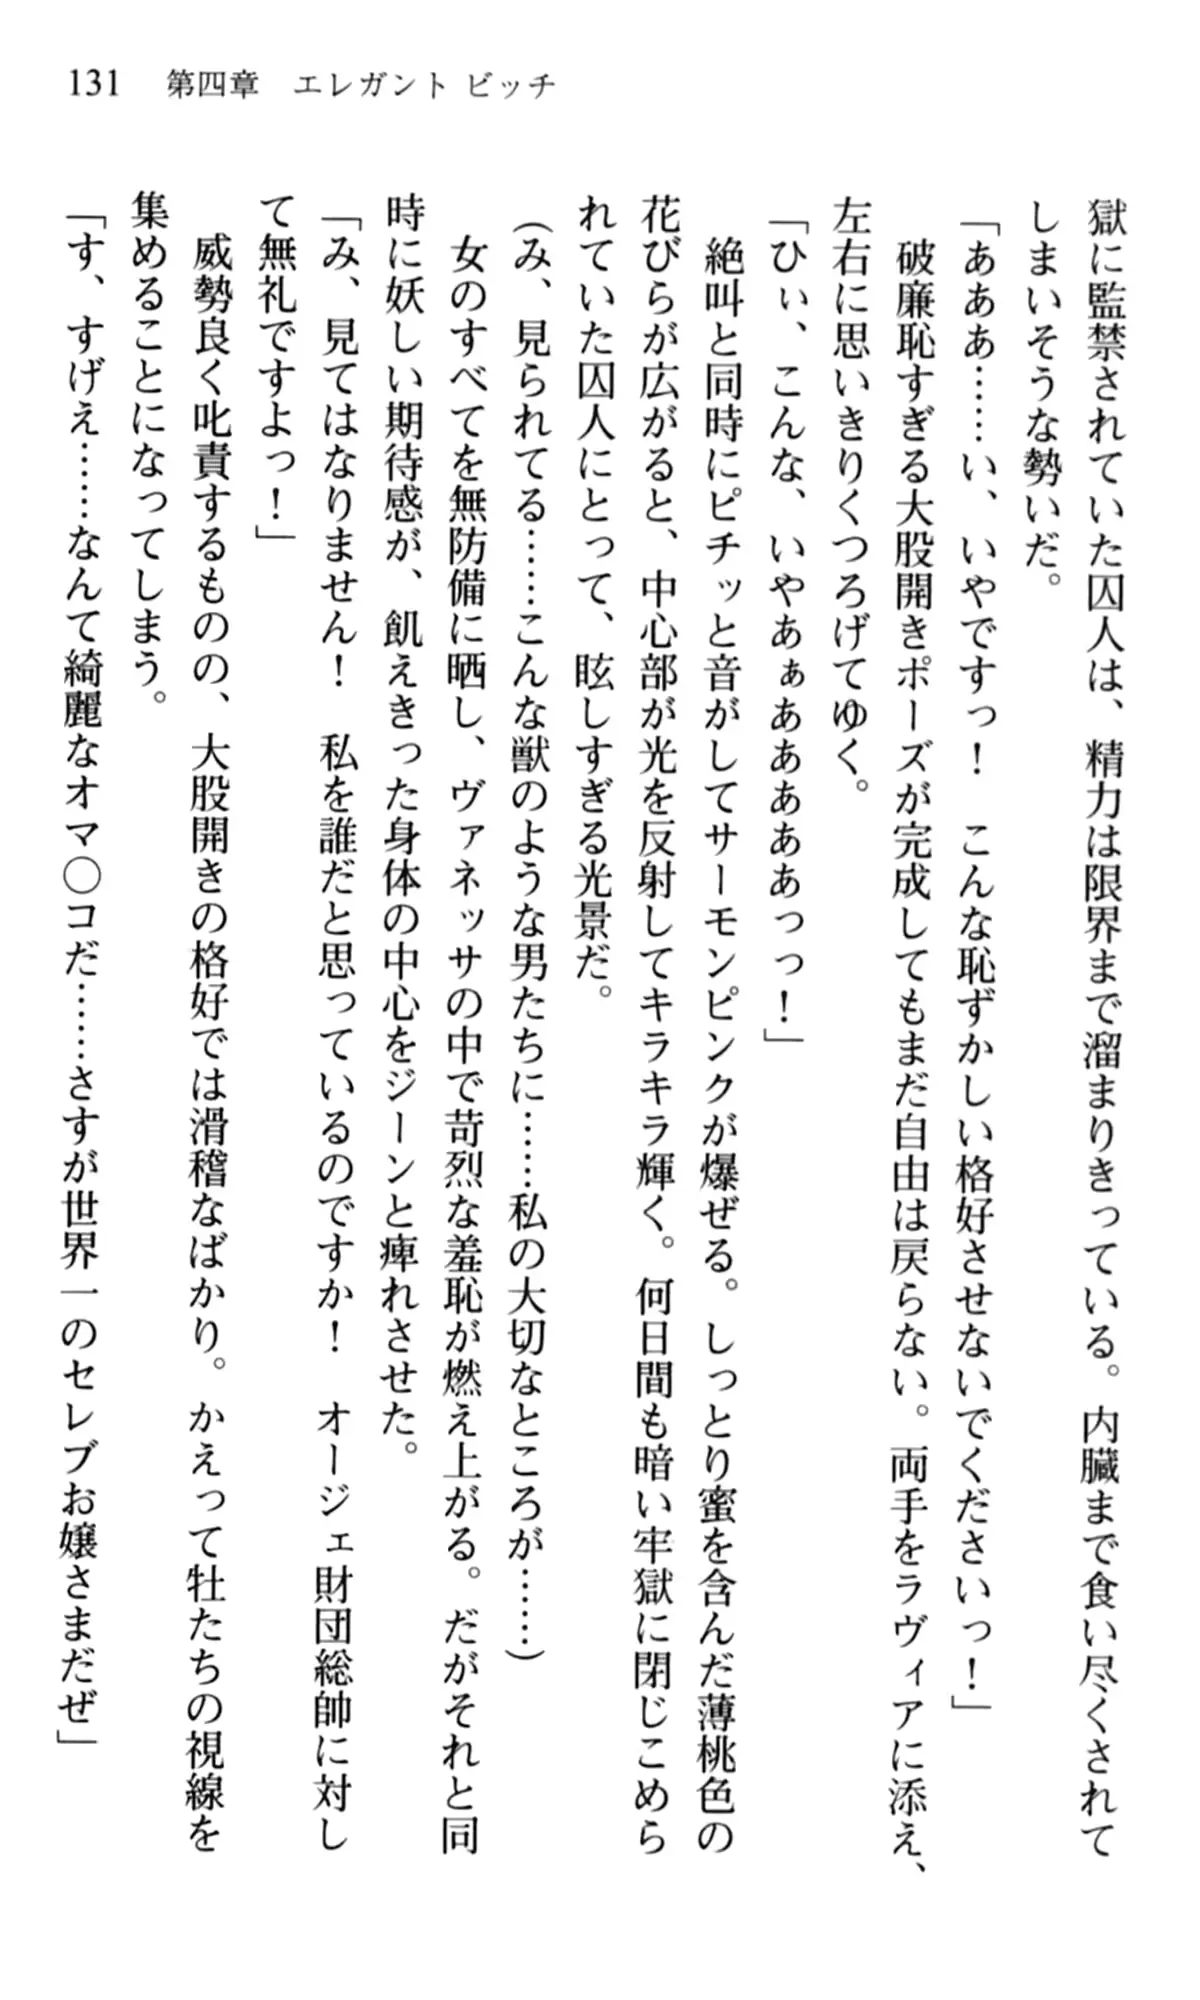 131　第四章　エレガント ビッチ
獄に監禁されていた囚人は、精力は限界まで溜まりきっている。内臓まで食い尽くされて
しまいそうな勢いだ。
「あああ……い、いやですっ！　こんな恥ずかしい格好させないでくださいっ！」
　破廉恥すぎる大股開きポーズが完成してもまだ自由は戻らない。両手をラヴィアに添え、
左右に思いきりくつろげてゆく。
「ひぃ、こんな、いやあぁあああああっっ！」
　絶叫と同時にピチッと音がしてサーモンピンクが爆ぜる。しっとり蜜を含んだ薄桃色の
花びらが広がると、中心部が光を反射してキラキラ輝く。何日間も暗い牢獄に閉じこめら
れていた囚人にとって、眩しすぎる光景だ。
（み、見られてる……こんな獣のような男たちに……私の大切なところが……）
　女のすべてを無防備に晒し、ヴァネッサの中で苛烈な羞恥が燃え上がる。だがそれと同
時に妖しい期待感が、飢えきった身体の中心をジーンと痺れさせた。
「み、見てはなりません！　私を誰だと思っているのですか！　オージェ財団総帥に対し
て無礼ですよっ！」
　威勢良く叱責するものの、大股開きの格好では滑稽なばかり。かえって牡たちの視線を
集めることになってしまう。
「す、すげえ……なんて綺麗なオマ〇コだ……さすが世界一のセレブお嬢さまだぜ」